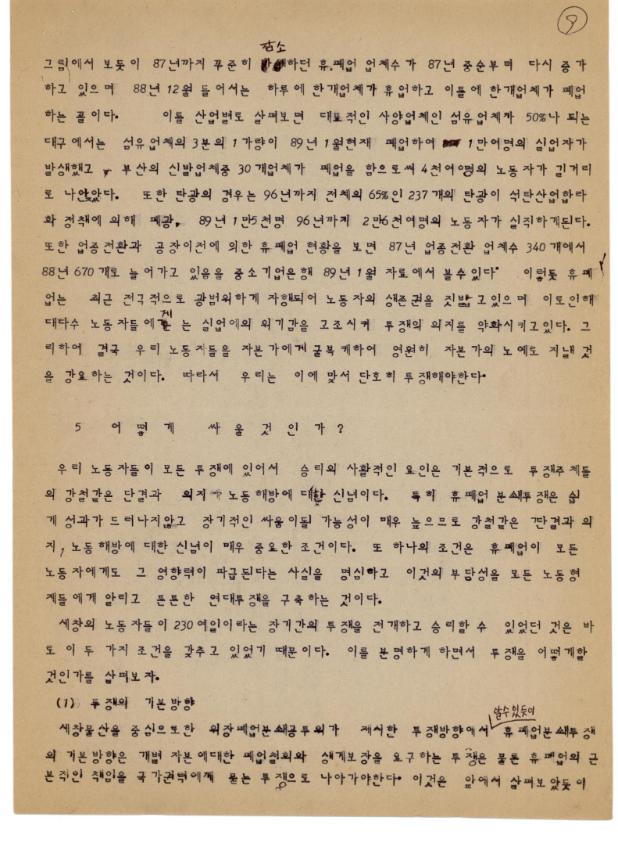 9
감소
그림에서 보듯이 87년까지 꾸준히 하던 휴.폐업 업체수가 87년 중순부터 다시 증가
하고 있으며 88년 12월 들어서는 하루에 한개업체가 휴업하고 이틀에 한개업체가 폐업
하는 꼴이다. 이를 산업별로 살펴보면 대표적인 사양업체인 섬유업체가 50%나 되는
대구에서는 섬유업체의 3분의 1가량이 89년 1월현재 폐업하여 1만여명의 실업자가
발생했고, 부산의 신발업체중 30개업체가 폐업을 함으로써 4천여명의 노동자가 길거리
로 나앉았다. 또한 탄광의 경우는 96년까지 전체의 65%인 237개의 탄광이 석탄산업합리
화 정책에 의해 폐광, 89년 1만5천명 96년까지 2만6천여명의 노동자가 실직하게된다.
또한 업종전환과 공장이전에 의한 휴폐업 현황을 보면 87년 업종전환 업체수 340개에서
88년 670개로 늘어가고 있음을 중소기업은행 89년 1월 자료에서 볼수있다. 이렇듯 휴폐
업는 최근 전국적으로 광범위하게 자행되어 노동자의 생존권을 짓밟고있으며 이로인해
대다수 노동자들에게 는 실업에의 위기감을 고조시켜 투쟁의 의지를 약화시키고있다. 그
리하여 결국 우리 노동자들을 자본가에게 굴복케하여 영원히 자본가의 노예로 지낼 것
을 강요하는 것이다. 따라서 우리는 이에 맞서 단호히 투쟁해야한다.
5 어떻게 싸울것인가?
우리 노동자들이 모든 투쟁에 있어서 승리의 사활적인 요인은 기본적으로 투쟁주체들
의 강철같은 단결과 의지, 노동해방에 대한 신념이다. 특히 휴폐업 분쇄투쟁은 쉽
게 성과가 드러나지않고 장기적인 싸움이될 가능성이 매우 높으므로 강철같은 단결과 의
지, 노동해방에 대한 신념이 매우 중요한 조건이다. 또 하나의 조건은 휴폐업이 모든
노동자에게도 그 영향력이 파급된다는 사실을 명심하고 이것의 부당성을 모든 노동형
제들에게 알리고 튼튼한 연대투쟁을 구축하는 것이다.
세창의 노동자들이 230여일이라는 장기간의 투쟁을 전개하고 승리할수 있었던 것은 바
로 이 두 가지 조건을 갖추고 있었기 때문이다. 이를 분명하게 하면서 투쟁을 어떻게할
것인가를 살펴보자.
(1) 투쟁의 기본방향
알수있듯이
세창물산을 중심으로한 위장폐업분쇄공투위가 제시한 투쟁방향에서 휴폐업분쇄투쟁
의 기본방향은 개별 자본에대한 폐업철회와 생계보장을 요구하는 투쟁은 물론 휴폐업의 근
본적인 책임을 국가권력에게 묻는 투쟁으로 나아가야한다. 이것은 앞에서 살펴보았듯이